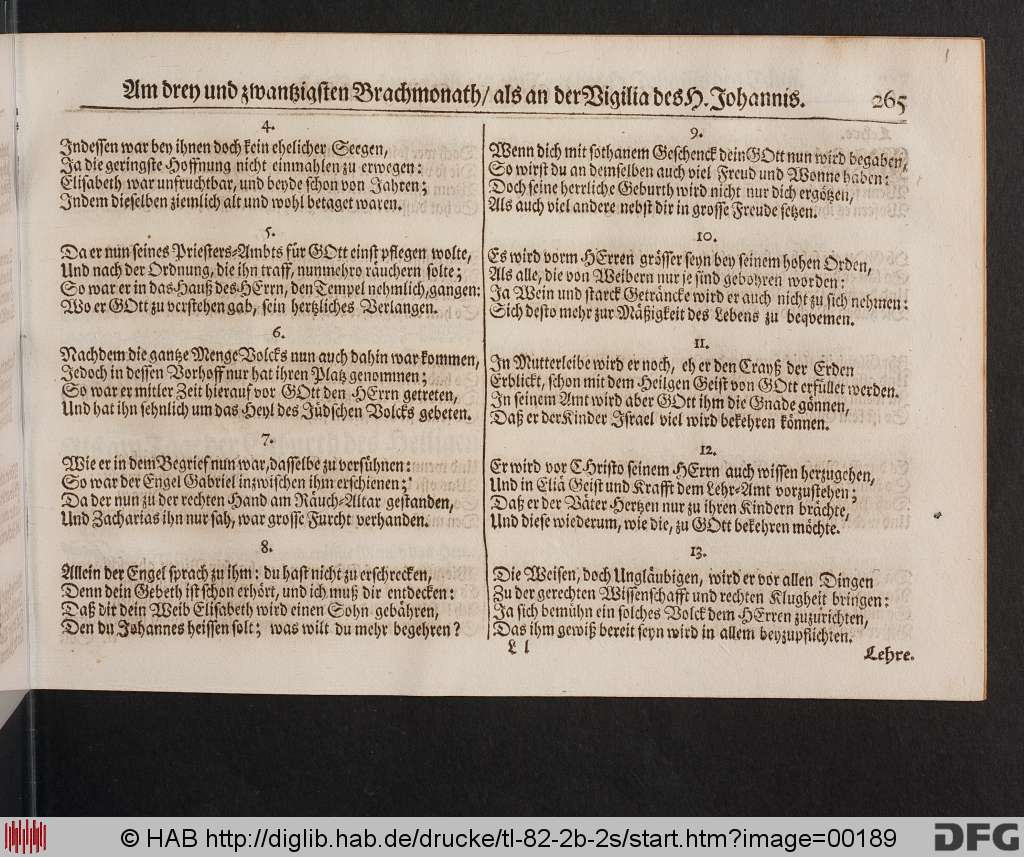 Am drey und zwantzigsten Brachmonath/ als an der Vigilia des H. Johannis. 265
4.
Indessen war bey ihnen doch kein ehelicher Seegen,
Ja die geringste Hoffnung nicht einmahlen zu erwegen:
Elisabeth war unfruchtbar, und beyde schon von Jahren;
Indem dieselben ziemlich alt und wohl betaget waren.
5.
Da er nun seines Priesters-Ambts für GOtt einst pflegen wolte,
Und nach der Ordnung, die ihn traff, nunmehro räuchern solte;
So war er in das Hauß des HErrn, den Tempel nehmlich, gangen:
Wo er GOtt zu verstehen gab, sein hertzliches Verlangen.
6.
Nachdem die gantze Menge Volcks nun auch dahin war kommen,
Jedoch in dessen Vorhoff nur hat ihren Platz genommen;
So war er mitler Zeit hierauf vor GOtt den HErrn getreten,
Und hat ihn sehnlich um das Heyl des Jüdschen Volcks gebeten.
7.
Wie er in dem Begrief nun war, dasselbe zu versühnen:
So war der Engel Gabriel inzwischen ihm erschienen;
Da der nun zu der rechten Hand am Räuch-Altar gestanden,
Und Zacharias ihn nur sah, war grosse Furcht verhanden.
8.
Allein der Engel sprach zu ihm: du hast nicht zu erschrecken,
Denn dein Gebeth ist schon erhört, und ich muß dir entdecken:
Daß dir dein Weib Elisabeth wird einen Sohn gebähren,
Den du Johannes heissen solt; was wilt du mehr begehren?
9.
Wenn dich mit sothanem Geschenck dein GOtt nun wird begaben,
So wirst du an demselben auch viel Freud und Wonne haben:
Doch seine herrliche Geburth wird nicht nur dich ergötzen,
Als auch viel andere nebst dir in grosse Freude setzen.
10.
Es wird vorm HErren grösser seyn bey seinem hohen Orden,
Als alle, die von Weibern nur je sind gebohren worden:
Ja Wein und starck Geträncke wird er auch nicht zu sich nehmen:
Sich desto mehr zur Mäßigkeit des Lebens zu beqvemen.
11.
In Mutterleibe wird er noch, eh er den Crayß der Erden
Erblickt, schon mit dem Heilgen Geist von GOtt erfüllet werden.
In seinem Amt wird aber GOtt ihm die Gnade gönnen,
Daß er der Kinder Israel viel wird bekehren können.
12.
Er wird vor CHristo seinem HErrn auch wissen herzugehen,
Und in Eliä Geist und Krafft dem Lehr-Amt vorzustehen;
Daß er der Väter Hertzen nur zu ihren Kindern brächte,
Und diese wiederum, wie die, zu GOtt bekehren möchte.
13.
Die Weisen, doch Ungläubigen, wird er vor allen Dingen
Zu der gerechten Wissenschafft und rechten Klugheit bringen:
Ja sich bemühn ein solches Volck dem HErren zuzurichten,
Das ihm gewiß bereit seyn wird in allem beyzupflichten.
L l
Lehre.
© HAB http://diglib.hab.de/drucke/tl-82-2b-2s/start.htm?image=00189
DFG